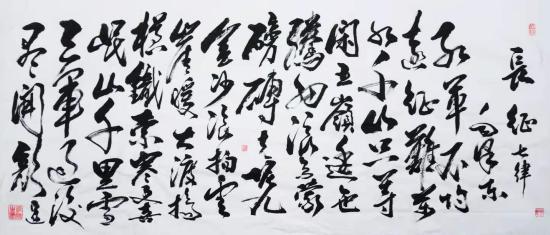 長征七律
毛澤東
紅軍不怕
遠征難萬
水千山只等
閑五嶺逶迤
騰細浪烏蒙
磅礴走泥丸
金沙浪拍雲
崖暖大渡橋
橫鐵索寒更喜
岷山千里雪
三軍過後
盡開顏